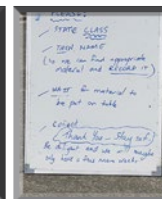 STATE CLASS
YOUR NAME
(so we can find appropriate
material and RECORD IT)
WAIT for material to
be put on table
COLLECT
Thank You - Stay safe
be diligent and we all
only have a few more weeks